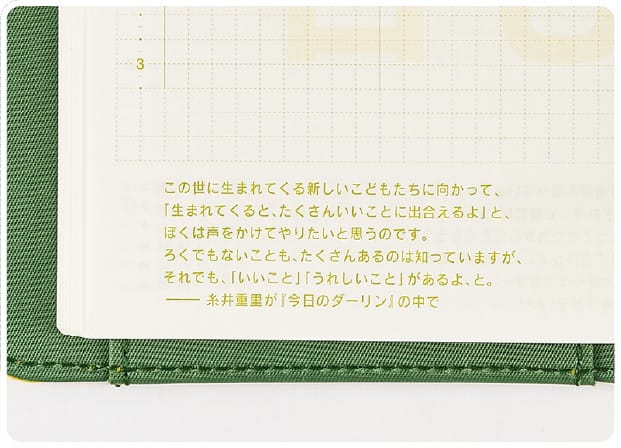 3
この世に生まれてくる新しいこどもたちに向かって、
「生まれてくると、たくさんいいことに出合えるよ」と、
ぼくは声をかけてやりたいと思うのです。
ろくでもないことも、たくさんあるのは知っていますが、
それでも、「いいこと」「うれしいこと」があるよ、と。
—— 糸井重里が『今日のダーリン』の中で